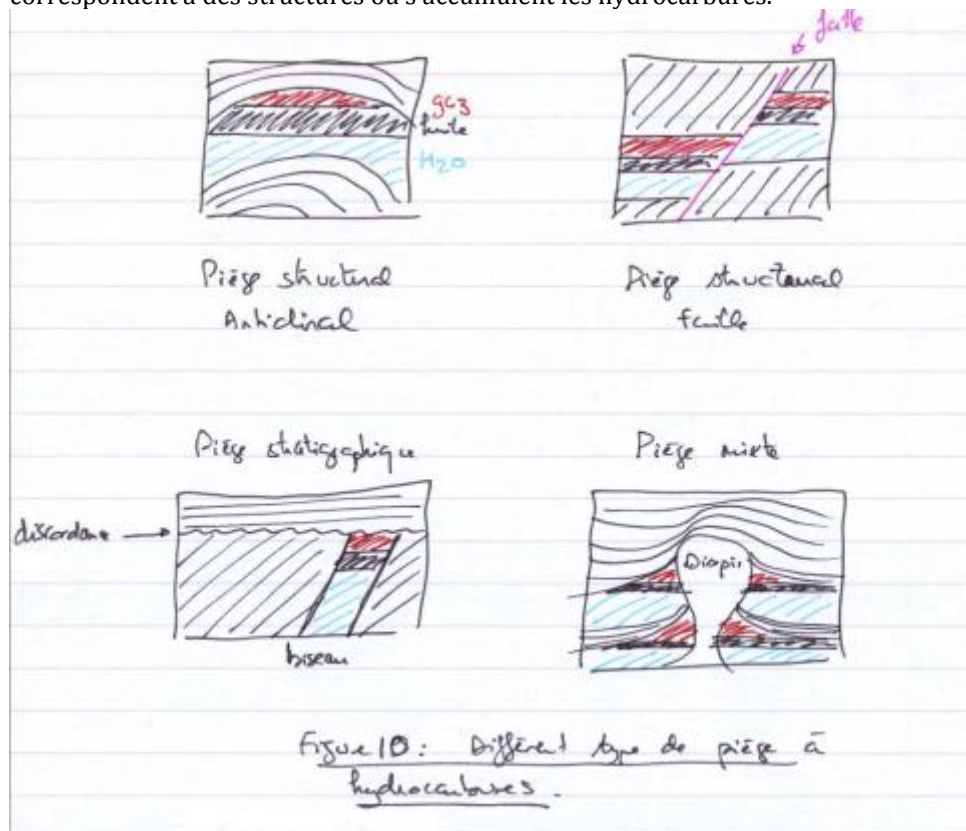 correspondent à des structures où s'accumulent les hydrocarbures.
faille
gaz
huile
H2O
Piège structural
Anticlinal
Piège structural
faille
Piège stratigraphique
Piège mixte
discordance
Diapir
biseau
Figure 10: Différent type de piège à
hydrocarbures.